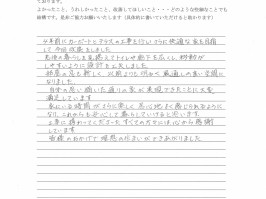 ております。
よかったこと、うれしかったこと、改善してほしいこと・・・どのような些細なことでも
結構です。是非ご協力お願いいたします(具体的に書いていただけると助かります)
4年前にカーポートとテラスの工事を行い さらに快適な家を目指
して今回改築をしました
老後の暮らしを 廊下 トイレ 広くし、移動が
しやすいように設計を工夫しました
部屋の 新しく 以前よりも明るく 風通しの良い空間に
なりました。
自分の思い描いた通りの家が実現できたことに大変
満足しています
家にいる時間がさらに楽しく 居心地 良く感じられるように
なり、これからも 暮らしていこうと思います
工事に携わってくださったすべての方々には心から感謝
しています
皆様のおかげで理想の住まいができあがりました